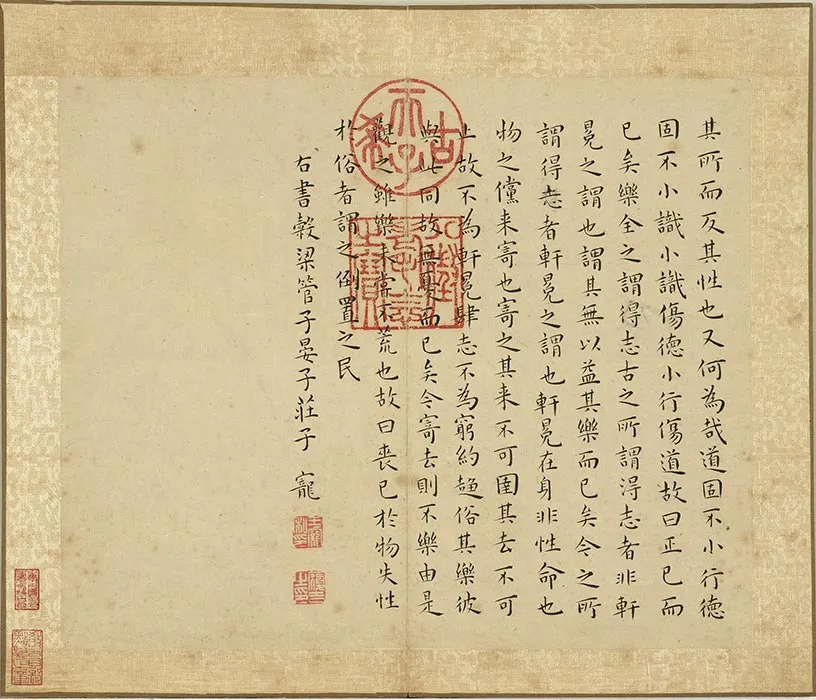 其所而反其性也又何為哉道固不小行德
固不小識小識傷德小行傷道故曰正己而
已矣樂全之謂得志古之所謂得志者非軒
冕之謂也謂其無以益其樂而已矣今之所
謂得志者軒冕之謂也軒冕在身非性命也
物之儻来寄也寄之其来不可圉其去不可
止故不為軒冕肆志不為窮約趨俗其樂彼
與此同故無憂而已矣今寄去則不樂由是
觀之雖樂未嘗不荒也故曰喪己於物失性
於俗者謂之倒置之民
右書穀梁管子晏子莊子 寵
古稀天子
八徵耄念之寶
王寵私印